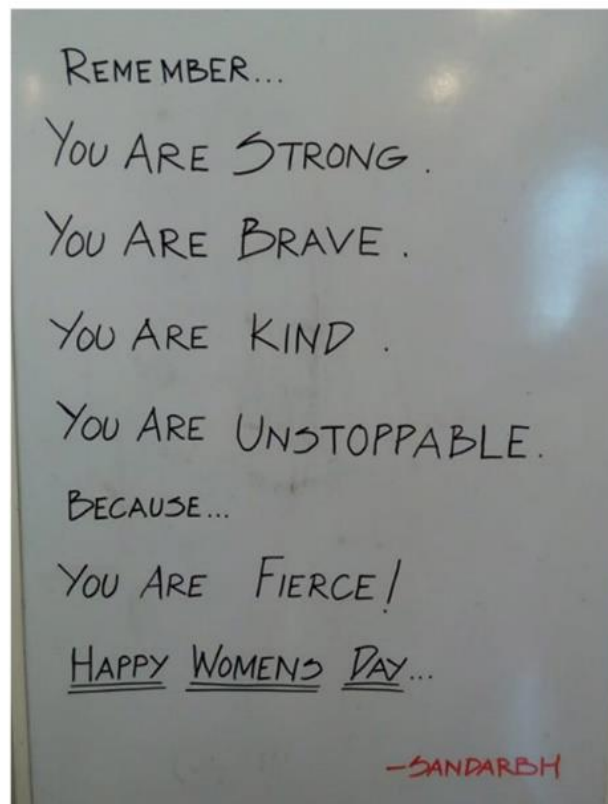 REMEMBER...
YOU ARE STRONG.
YOU ARE BRAVE.
YOU ARE KIND.
YOU ARE UNSTOPPABLE.
BECAUSE...
YOU ARE FIERCE!
HAPPY WOMENS DAY...
-SANDARBH